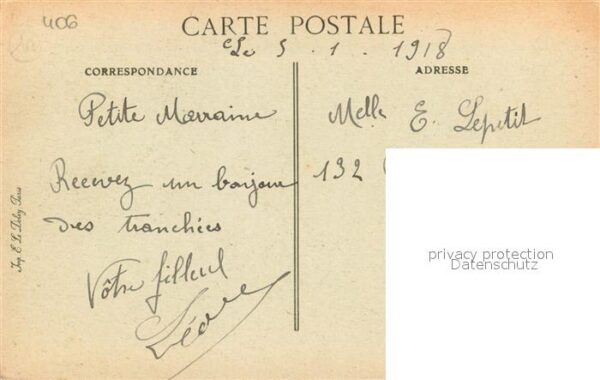 406
CARTE POSTALE
Le 5.1.1918
CORRESPONDANCE
ADRESSE
Petite Marraine
Recevez un bonjour
des tranchées
Vôtre filleul
Melle E. Lepetit
132
privacy protection
Datenschutz
Imp. E. Le Deley Paris